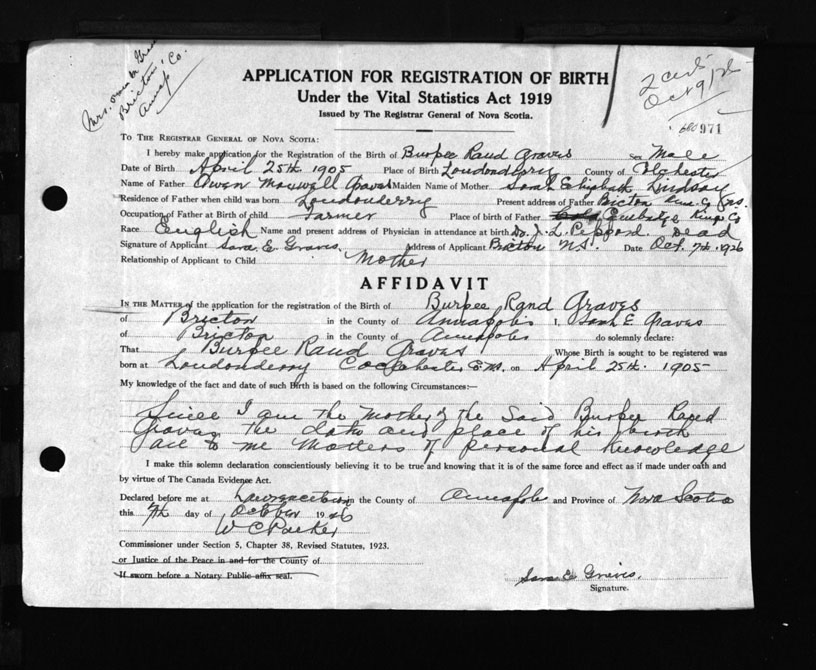 Bricton, Co.
2 cert
Oct 9/26
APPLICATION FOR REGISTRATION OF BIRTH
Under the Vital Statistics Act 1919
Issued by The Registrar General of Nova Scotia.
971
TO THE REGISTRAR GENERAL OF NOVA SCOTIA:
I hereby make application for the Registration of the Birth of Burpee Rand Graves Sex Male
Date of Birth April 25th 1905 Place of Birth Londonderry County of Colchester
Name of Father Owen Maxwell Graves Maiden Name of Mother Sarah Elizabeth Lindsay
Residence of Father when child was born Londonderry Present address of Father Bricton N.S.
Occupation of Father at Birth of child Farmer Place of birth of Father Kings Co
Race English Name and present address of Physician in attendance at birth Dr. J. L. Peppard. Dead
Signature of Applicant Sara E. Graves. Address of Applicant Bricton N.S. Date Oct. 7th, 1926
Relationship of Applicant to Child Mother
AFFIDAVIT
IN THE MATTER of the application for the registration of the Birth of Burpee Rand Graves
of Bricton in the County of Annapolis I, Sarah E Graves
of Bricton in the County of Annapolis do solemnly declare:
That Burpee Rand Graves Whose Birth is sought to be registered was
born at Londonderry Colchester on April 25th 1905
My knowledge of the fact and date of such Birth is based on the following Circumstances:—
Since I am the Mother of the Said Burpee Rand
Graves the date and place of his birth
are to me Matters of Personal Knowledge
I make this solemn declaration conscientiously believing it to be true and knowing that it is of the same force and effect as if made under oath and
by virtue of The Canada Evidence Act.
Declared before me at Lawrencetown in the County of Annapolis and Province of Nova Scotia
this 7th day of October 1926
W C Parker
Commissioner under Section 5, Chapter 38, Revised Statutes, 1923.
or Justice of the Peace in and for the County of
If sworn before a Notary Public affix seal.
Sara E. Graves.
Signature.